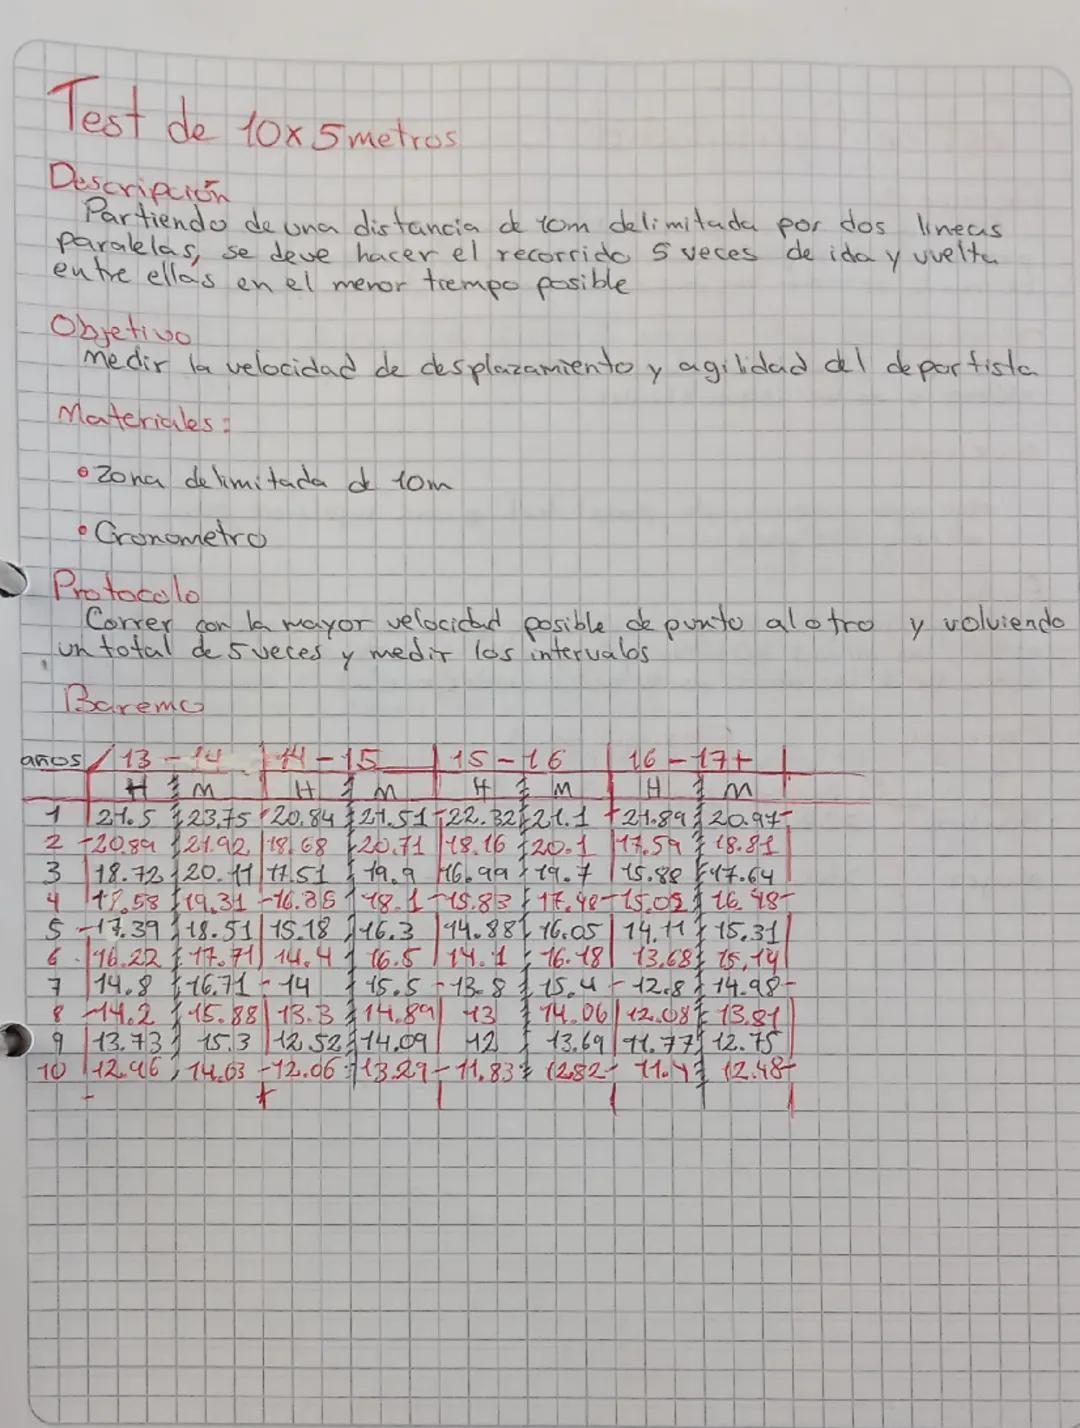 Test de 10x5metros
Descripción
Partiendo de una distancia de 10m delimitada por dos lineas
paralelas, se deve hacer el recorrido 5 veces de ida y vuelta
entre ellas en el menor tiempo posible
Objetivo
Medir la velocidad de desplazamiento y agilidad del deportista
Materiales:
• Zona delimitada de 10m
• Cronometro
Protocolo
Correr con la mayor velocidad posible de punto al otro y volviendo
un total de 5 veces y medir los intervalos
Baremo
años 13-14 14-15 15-16 16-17+
H M H M H M H M
1 21.5 23,75 20.84 21.51 22.32 21.1 21.89 20.97
2 20.89 21.92 18.68 20.71 18.16 20.1 17.59 18.81
3 18.72 20.11 17.51 19.9 16.99 19.7 15.88 17.64
4 19.31 18.1 15.83 17.48 16.48
5 17.39 18.51 15.18 16.3 14.88 16.05 14.11 15.31
6 16.22 17.71 14.4 16.5 14.1 16.18 13.68 15,14
7 14.8 16.71 14 15.5 13.8 15.4 12.8 14.98
8 14.2 15.88 13.3 14.89 13 14.06 12.08 13.81
9 13.73 15.3 12.52 14.09 12 13.69 11.77 12.75
10 12.96 14.03 12.06 13.29 11.83 12.82 12.48